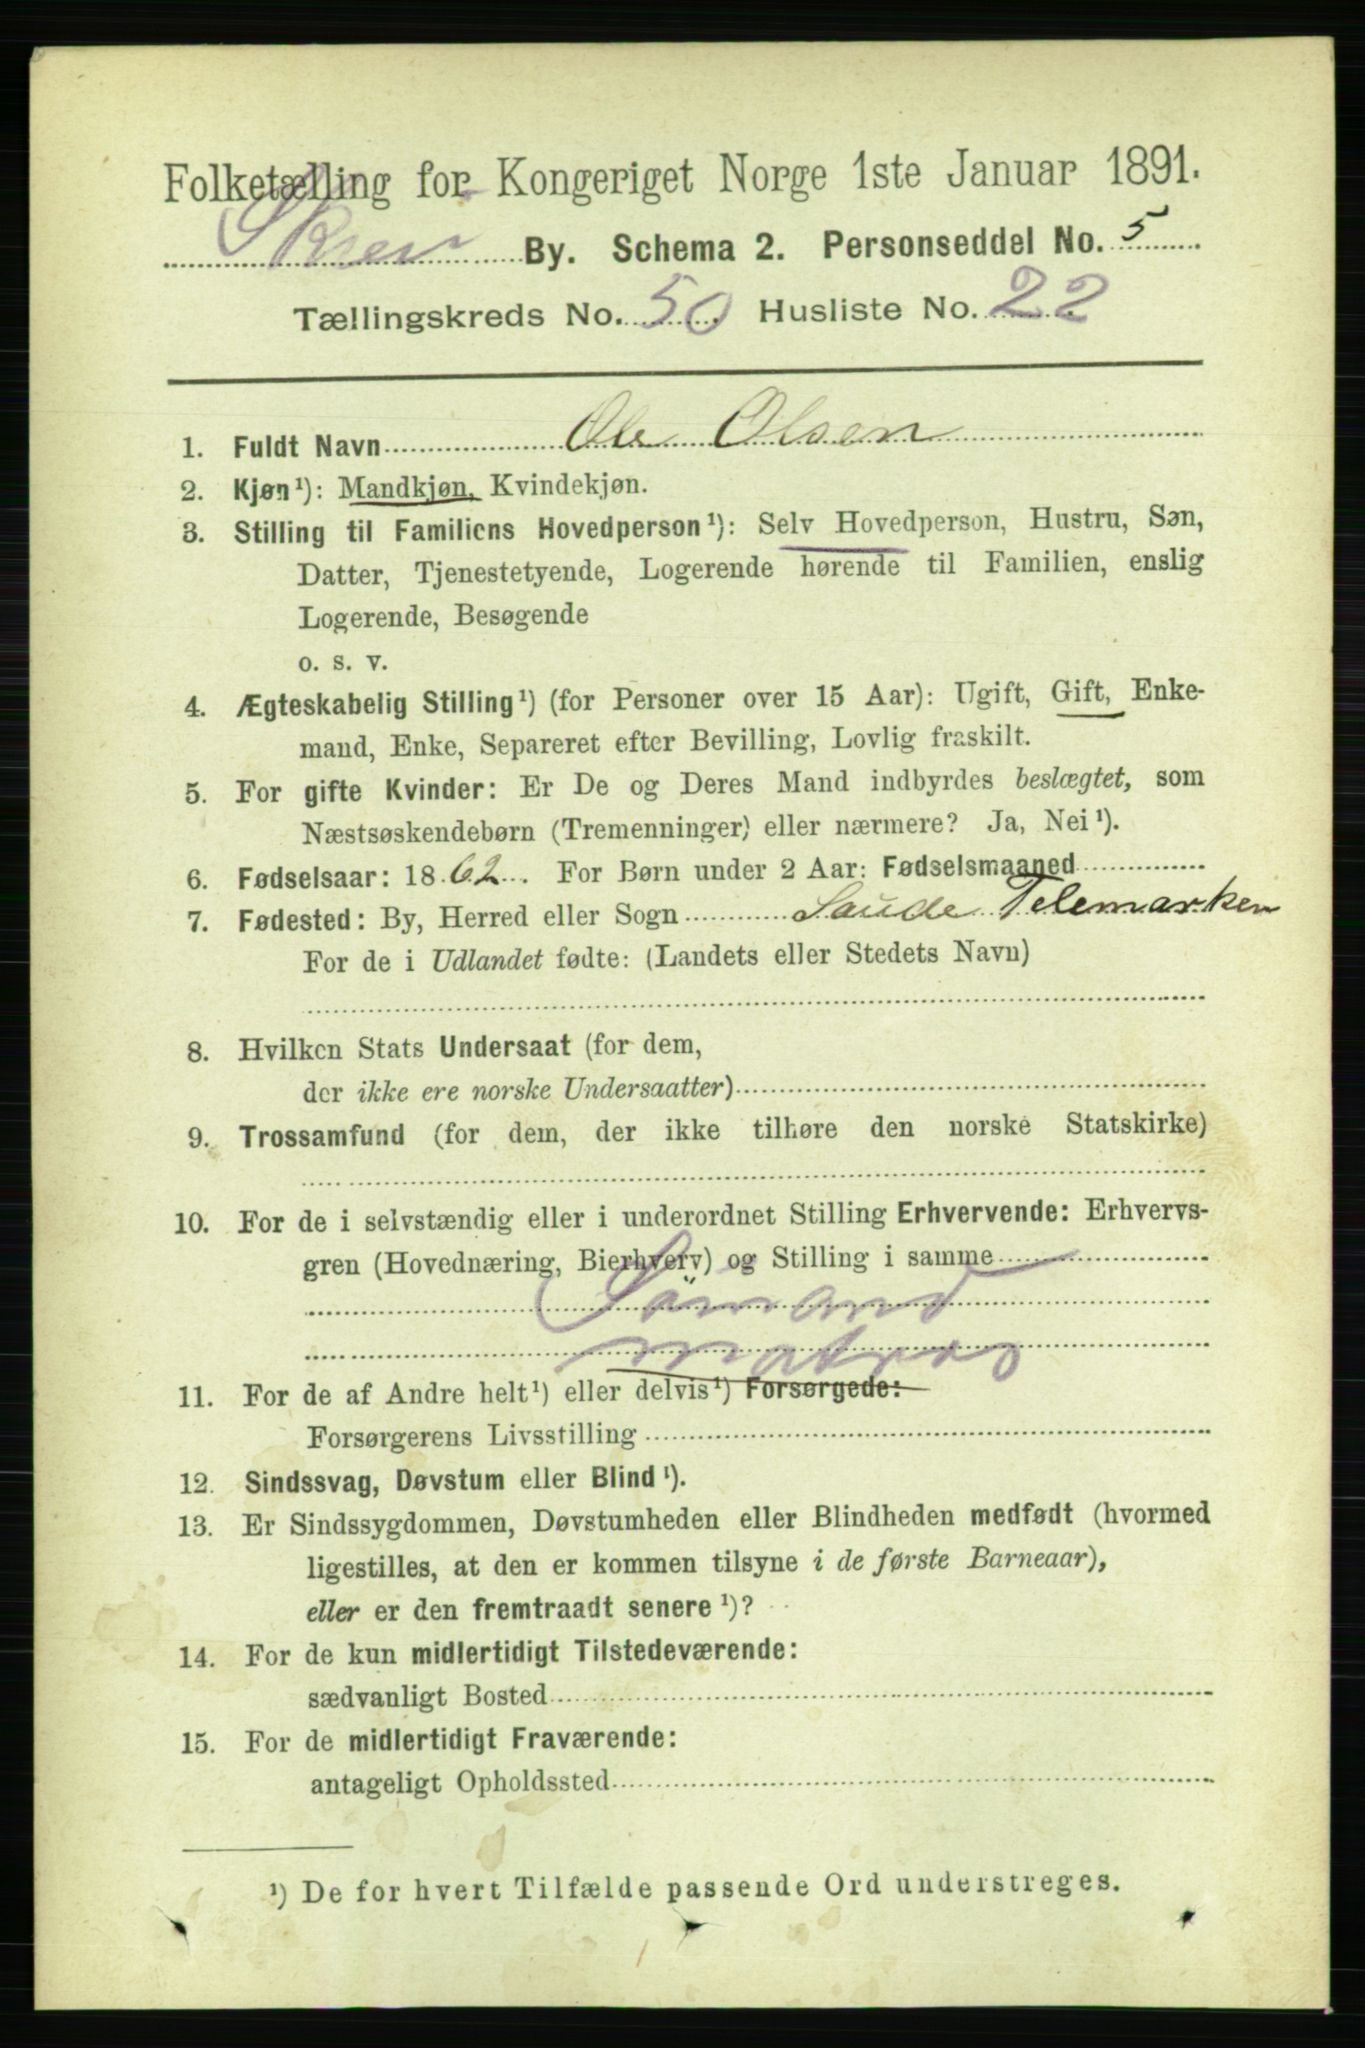 Folketælling for Kongeriget Norge 1ste Januar 1891.
Skien By. Schema 2. Personseddel No. 5
Tællingskreds No. 50 Husliste No. 22
1. Fuldt Navn Ole Olsen
2. Kjøn¹): Mandkjøn, Kvindekjøn.
3. Stilling til Familiens Hovedperson¹): Selv Hovedperson, Hustru, Søn,
Datter, Tjenestetyende, Logerende hørende til Familien, enslig
Logerende, Besøgende
o. s. v.
4. Ægteskabelig Stilling¹) (for Personer over 15 Aar): Ugift, Gift, Enke-
mand, Enke, Separeret efter Bevilling, Lovlig fraskilt.
5. For gifte Kvinder: Er De og Deres Mand indbyrdes beslægtet, som
Næstsøskendebørn (Tremenninger) eller nærmere? Ja, Nei¹).
6. Fødselsaar: 1862. For Børn under 2 Aar: Fødselsmaaned
7. Fødested: By, Herred eller Sogn Saude Telemarken
For de i Udlandet fødte: (Landets eller Stedets Navn)
8. Hvilken Stats Undersaat (for dem,
der ikke ere norske Undersaatter)
9. Trossamfund (for dem, der ikke tilhøre den norske Statskirke)
10. For de i selvstændig eller i underordnet Stilling Erhvervende: Erhvervs-
gren (Hovednæring, Bierhverv) og Stilling i samme
Sömand
matros
11. For de af Andre helt¹) eller delvis¹) Forsørgede:
Forsørgerens Livsstilling
12. Sindssvag, Døvstum eller Blind¹).
13. Er Sindssygdommen, Døvstumheden eller Blindheden medfødt (hvormed
ligestilles, at den er kommen tilsyne i de første Barneaar),
eller er den fremtraadt senere¹)?
14. For de kun midlertidigt Tilstedeværende:
sædvanligt Bosted
15. For de midlertidigt Fraværende:
antageligt Opholdssted
¹) De for hvert Tilfælde passende Ord understreges.